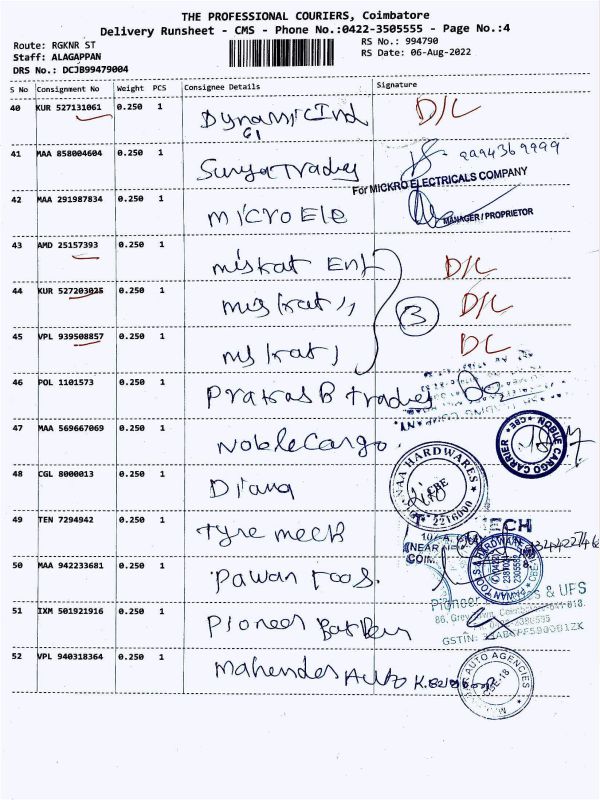 THE PROFESSIONAL COURIERS, Coimbatore
Delivery Runsheet - CMS - Phone No.:0422-3505555 - Page No.:4
Route: RGKNR ST
Staff: ALAGAPPAN
DRS No.: DCJB99479004
RS No.: 994790
RS Date: 06-Aug-2022
S No Consignment No Weight PCS Consignee Details Signature
40 KUR 527131061 0.250 1 Dynamic Ind D/L
41 MAA 858004604 0.250 1 Surya Trades 9994369999
For MICKRO ELECTRICALS COMPANY
42 MAA 291987834 0.250 1 micro Ele
MANAGER / PROPRIETOR
43 AMD 25157393 0.250 1 miskat Ent D/L
44 KUR 527203025 0.250 1 miskat ,, D/L
3
45 VPL 939508857 0.250 1 miskat , DL
46 POL 1101573 0.250 1 Prakas B Trades
47 MAA 569667069 0.250 1 Noble Cargo.
NOBLE CARGO CARRIER
CBE
48 CGL 8000013 0.250 1 Diana
HARDWARES
CBE
2216000
49 TEN 7294942 0.250 1 tyre mech
50 MAA 942233681 0.250 1 Pawan Tools.
51 IXM 501921916 0.250 1 Pioneer Battery
Pioneer & UFS
GSTIN:
52 VPL 940318364 0.250 1 Mahendes Auto
AUTO AGENCIES
CBE-18